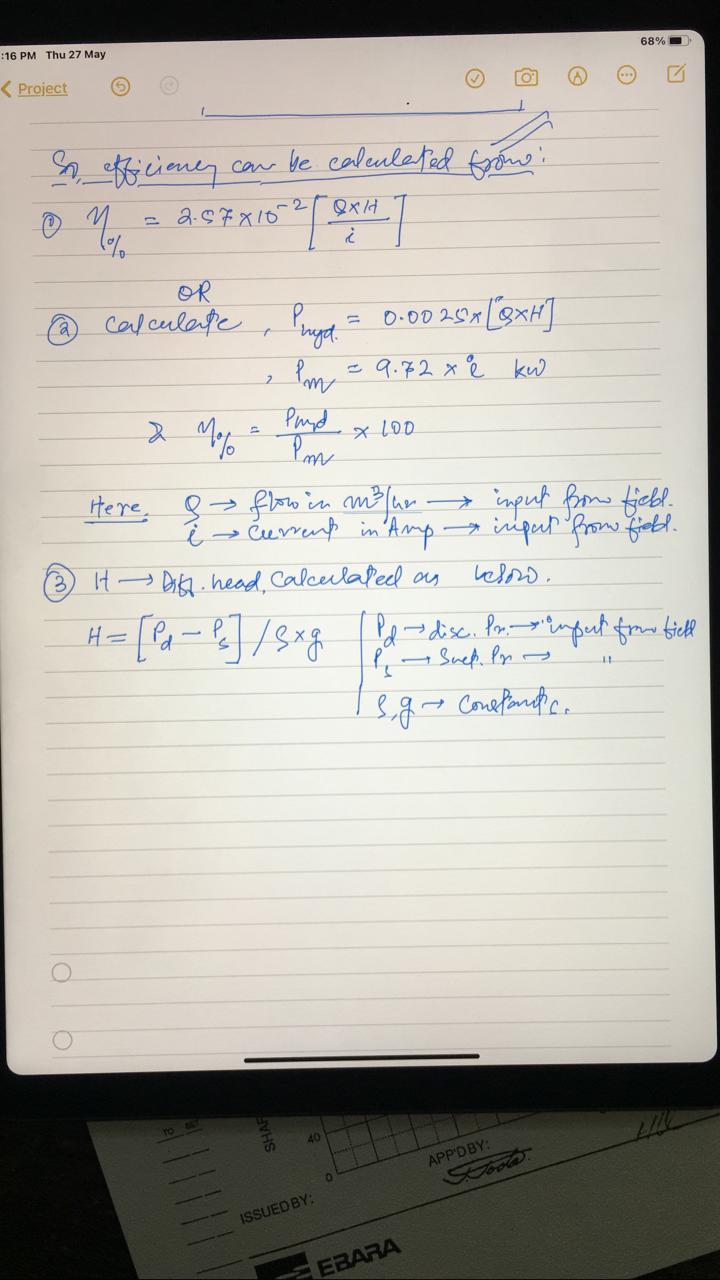 :16 PM Thu 27 May
68%
Project
So, efficiency can be calculated from:
① η% = 2.57 × 10⁻² [Q×H / i]
OR
② Calculate, Phyd. = 0.0025 × [Q×H]
, Pm = 9.72 × i kw
& η% = Phyd / Pm × 100
Here, Q → flow in m³/hr → input from field.
i → Current in Amp → input from field.
③ H → Diff. head, Calculated as below.
H = [Pd − Ps] / ρ×g
Pd → disc. Pr. → input from field
Ps → Suct. Pr → "
ρ, g → Constants.
TO
SHAF
40
0
APP'D BY:
ISSUED BY:
EBARA